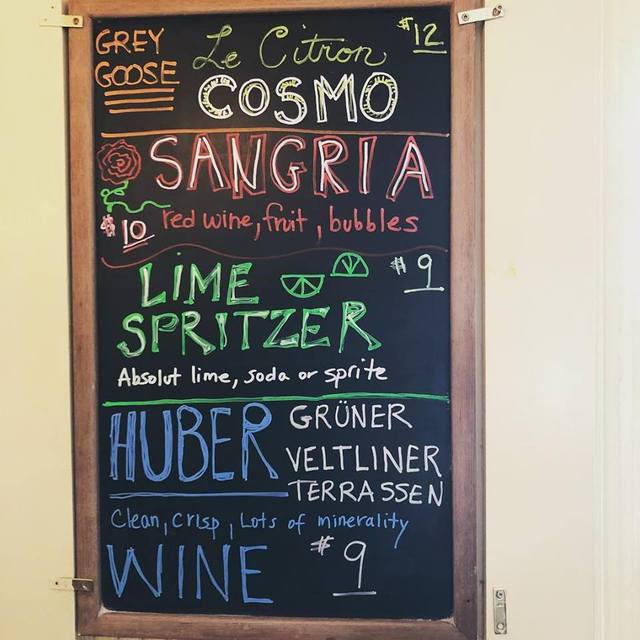 GREY
GOOSE
Le Citron
COSMO
$12
SANGRIA
$10
red wine, fruit, bubbles
LIME
SPRITZER
$9
Absolut lime, soda or sprite
HUBER
GRÜNER
VELTLINER
TERRASSEN
Clean, crisp, Lots of minerality
WINE
$9